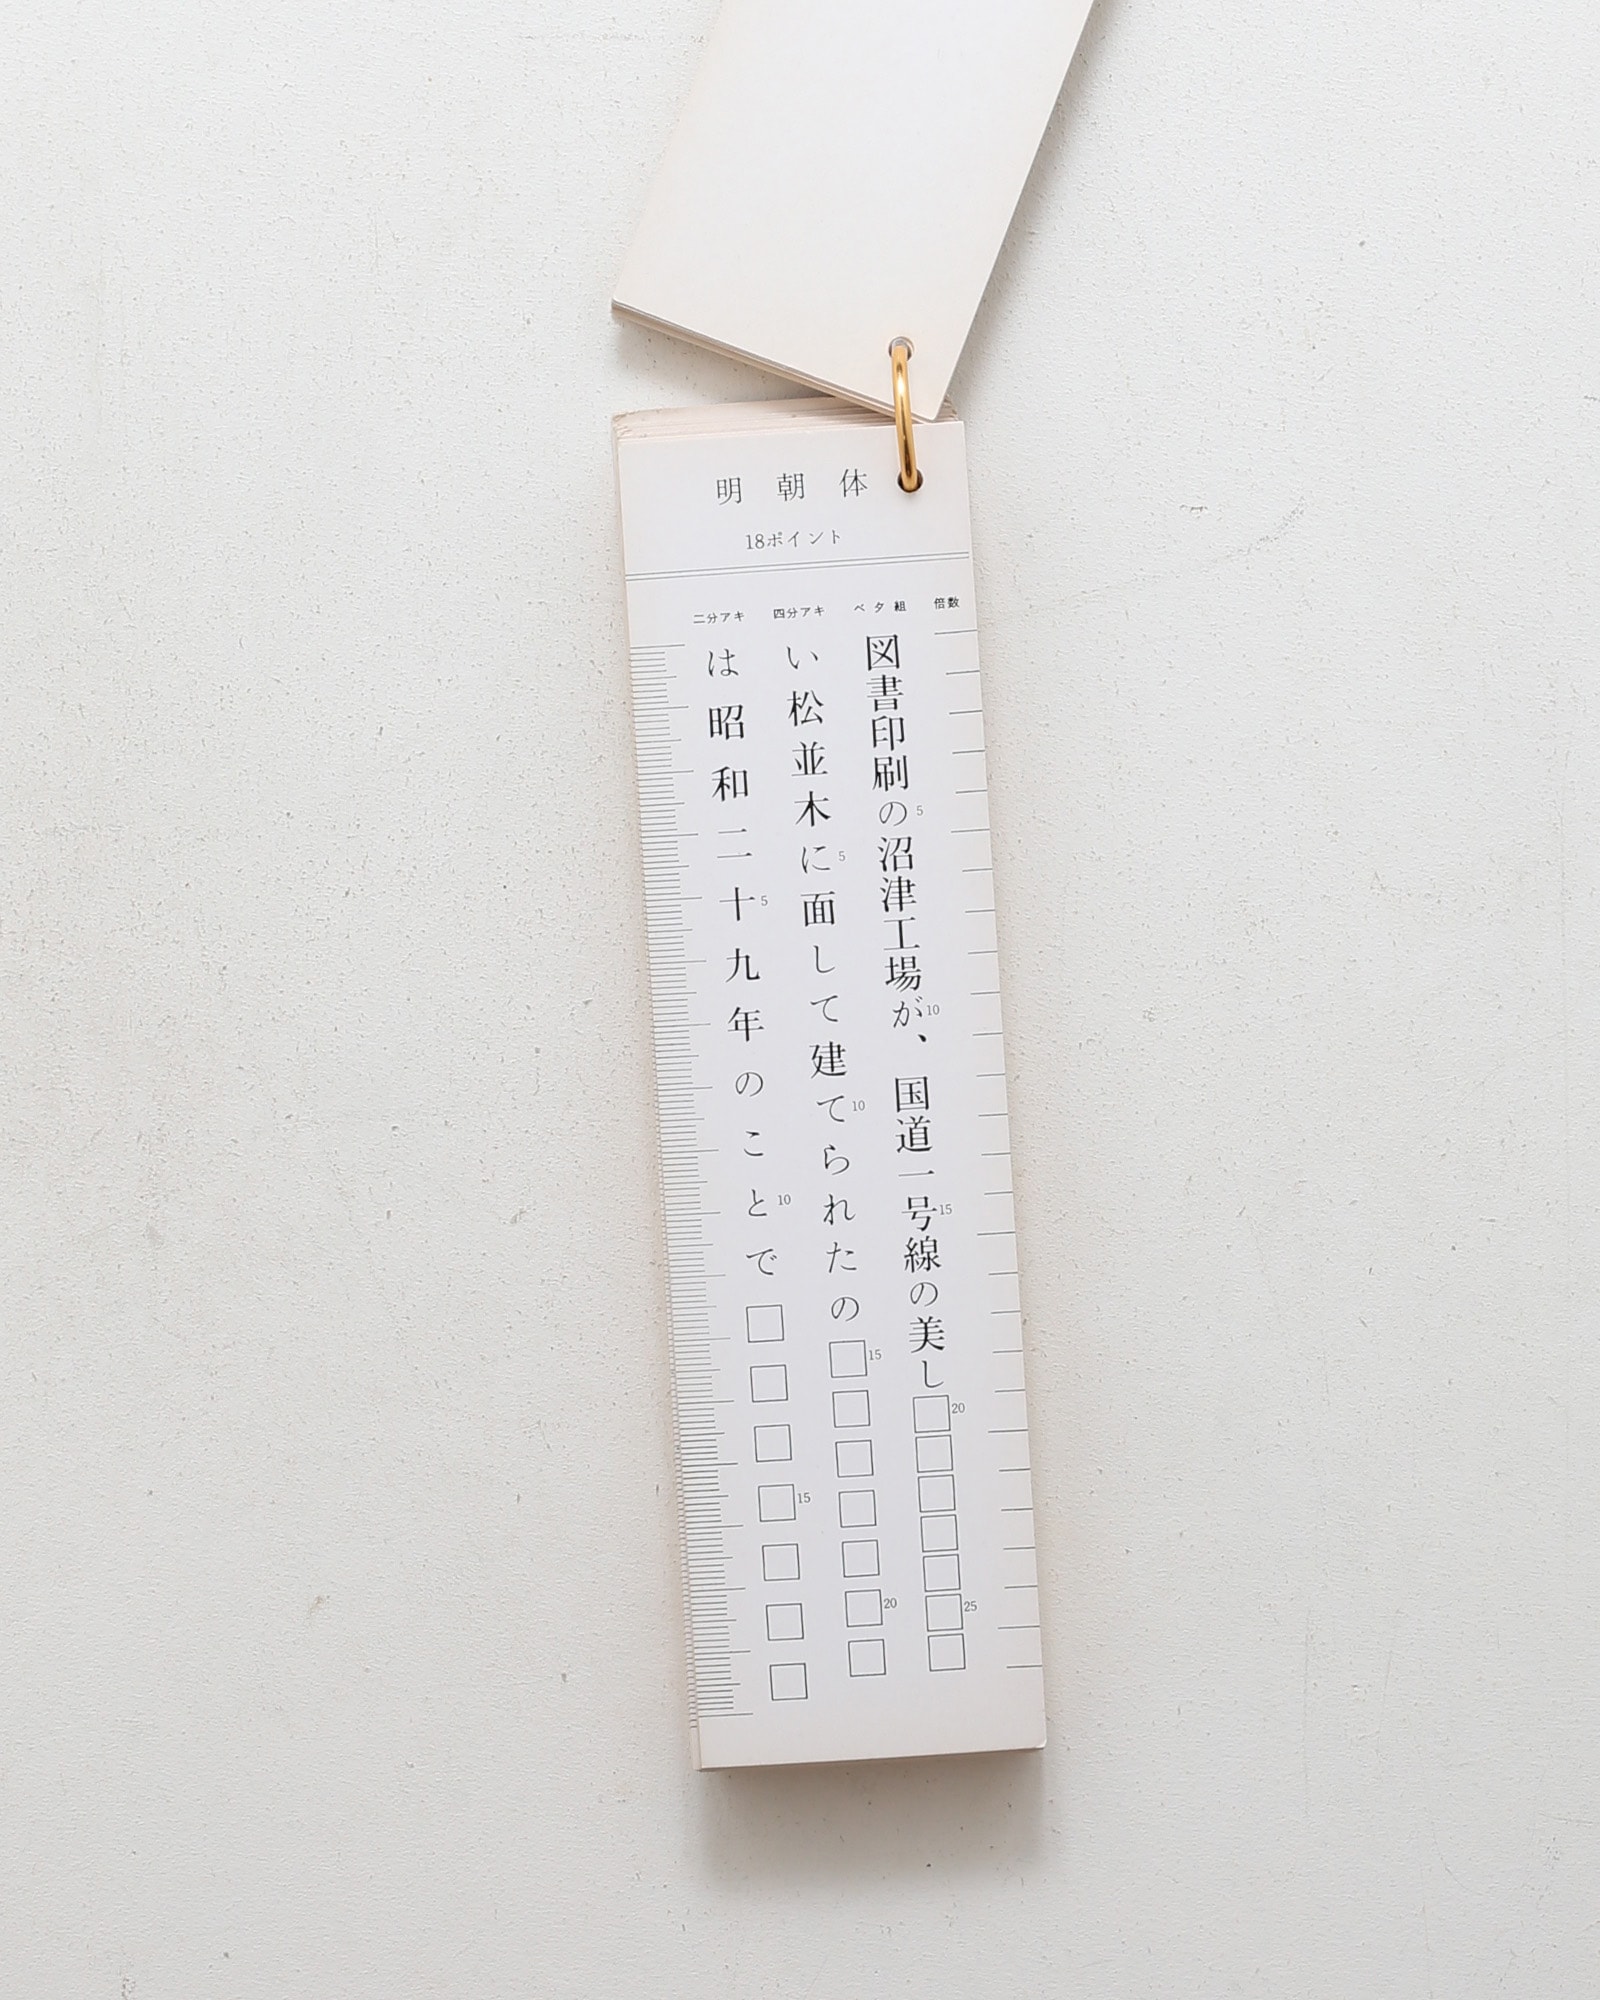 明朝体
18ポイント
倍数
ベタ組
図書印刷の沼津工場が、国道一号線の美し□□□□□□□
5
10
15
20
25
四分アキ
い松並木に面して建てられたの□□□□□□□
5
10
15
20
二分アキ
は昭和二十九年のことで□□□□□□□
5
10
15